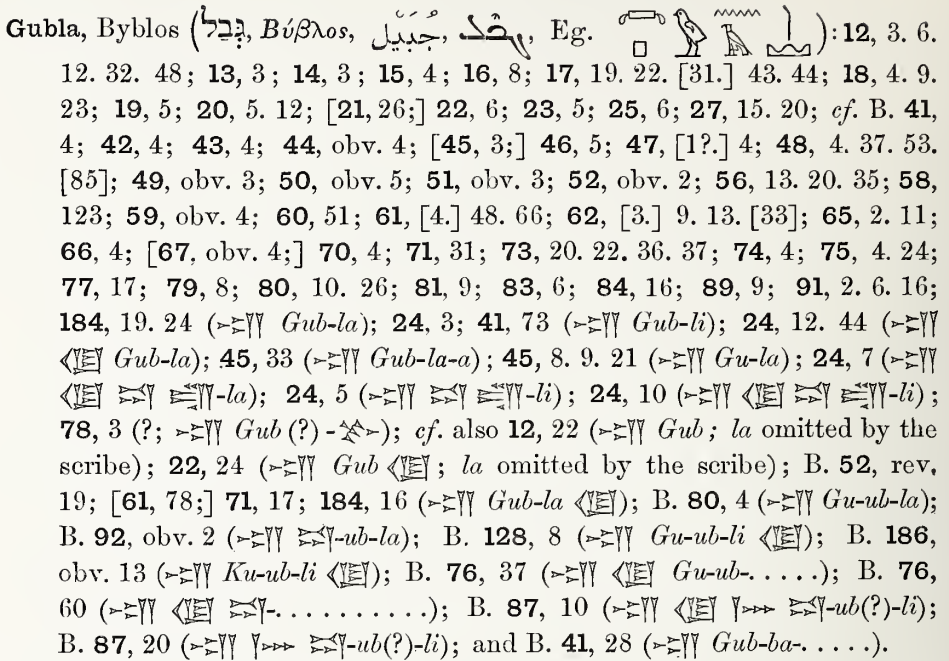 Gubla, Byblos (גְּבַל, Βύβλος, جُبَيْل, ܓܒܠ, Eg. ): 12, 3. 6.
12. 32. 48; 13, 3; 14, 3; 15, 4; 16, 8; 17, 19. 22. [31.] 43. 44; 18, 4. 9.
23; 19, 5; 20, 5. 12; [21, 26;] 22, 6; 23, 5; 25, 6; 27, 15. 20; cf. B. 41,
4; 42, 4; 43, 4; 44, obv. 4; [45, 3;] 46, 5; 47, [1?.] 4; 48, 4. 37. 53.
[85]; 49, obv. 3; 50, obv. 5; 51, obv. 3; 52, obv. 2; 56, 13. 20. 35; 58,
123; 59, obv. 4; 60, 51; 61, [4.] 48. 66; 62, [3.] 9. 13. [33]; 65, 2. 11;
66, 4; [67, obv. 4;] 70, 4; 71, 31; 73, 20. 22. 36. 37; 74, 4; 75, 4. 24;
77, 17; 79, 8; 80, 10. 26; 81, 9; 83, 6; 84, 16; 89, 9; 91, 2. 6. 16;
184, 19. 24 (𒌷 Gub-la); 24, 3; 41, 73 (𒌷 Gub-li); 24, 12. 44 (𒌷
𒆠 Gub-la); 45, 33 (𒌷 Gub-la-a); 45, 8. 9. 21 (𒌷 Gu-la); 24, 7 (𒌷
𒆠 -la); 24, 5 (𒌷 -li); 24, 10 (𒌷 𒆠 -li);
78, 3 (?; 𒌷 Gub (?) - ); cf. also 12, 22 (𒌷 Gub; la omitted by the
scribe); 22, 24 (𒌷 Gub 𒆠; la omitted by the scribe); B. 52, rev.
19; [61, 78;] 71, 17; 184, 16 (𒌷 Gub-la 𒆠); B. 80, 4 (𒌷 Gu-ub-la);
B. 92, obv. 2 (𒌷 -ub-la); B. 128, 8 (𒌷 Gu-ub-li 𒆠); B. 186,
obv. 13 (𒌷 Ku-ub-li 𒆠); B. 76, 37 (𒌷 𒆠 Gu-ub-.....); B. 76,
60 (𒌷 𒆠 -..........); B. 87, 10 (𒌷 𒆠 -ub(?)-li);
B. 87, 20 (𒌷 -ub(?)-li); and B. 41, 28 (𒌷 Gub-ba-.....).